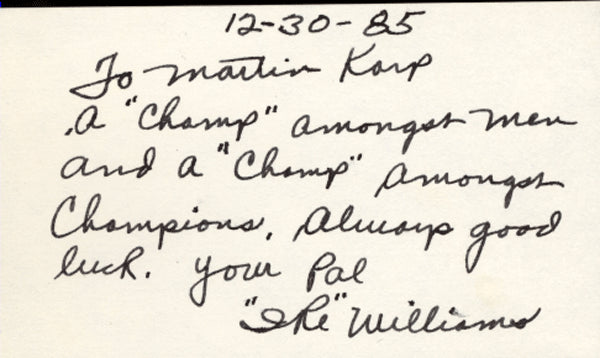 12-30-85
To Martin Karp
A "Champ" amongst men
and a "Champ" amongst
Champions. Always good
luck. Your Pal
"Ike" Williams